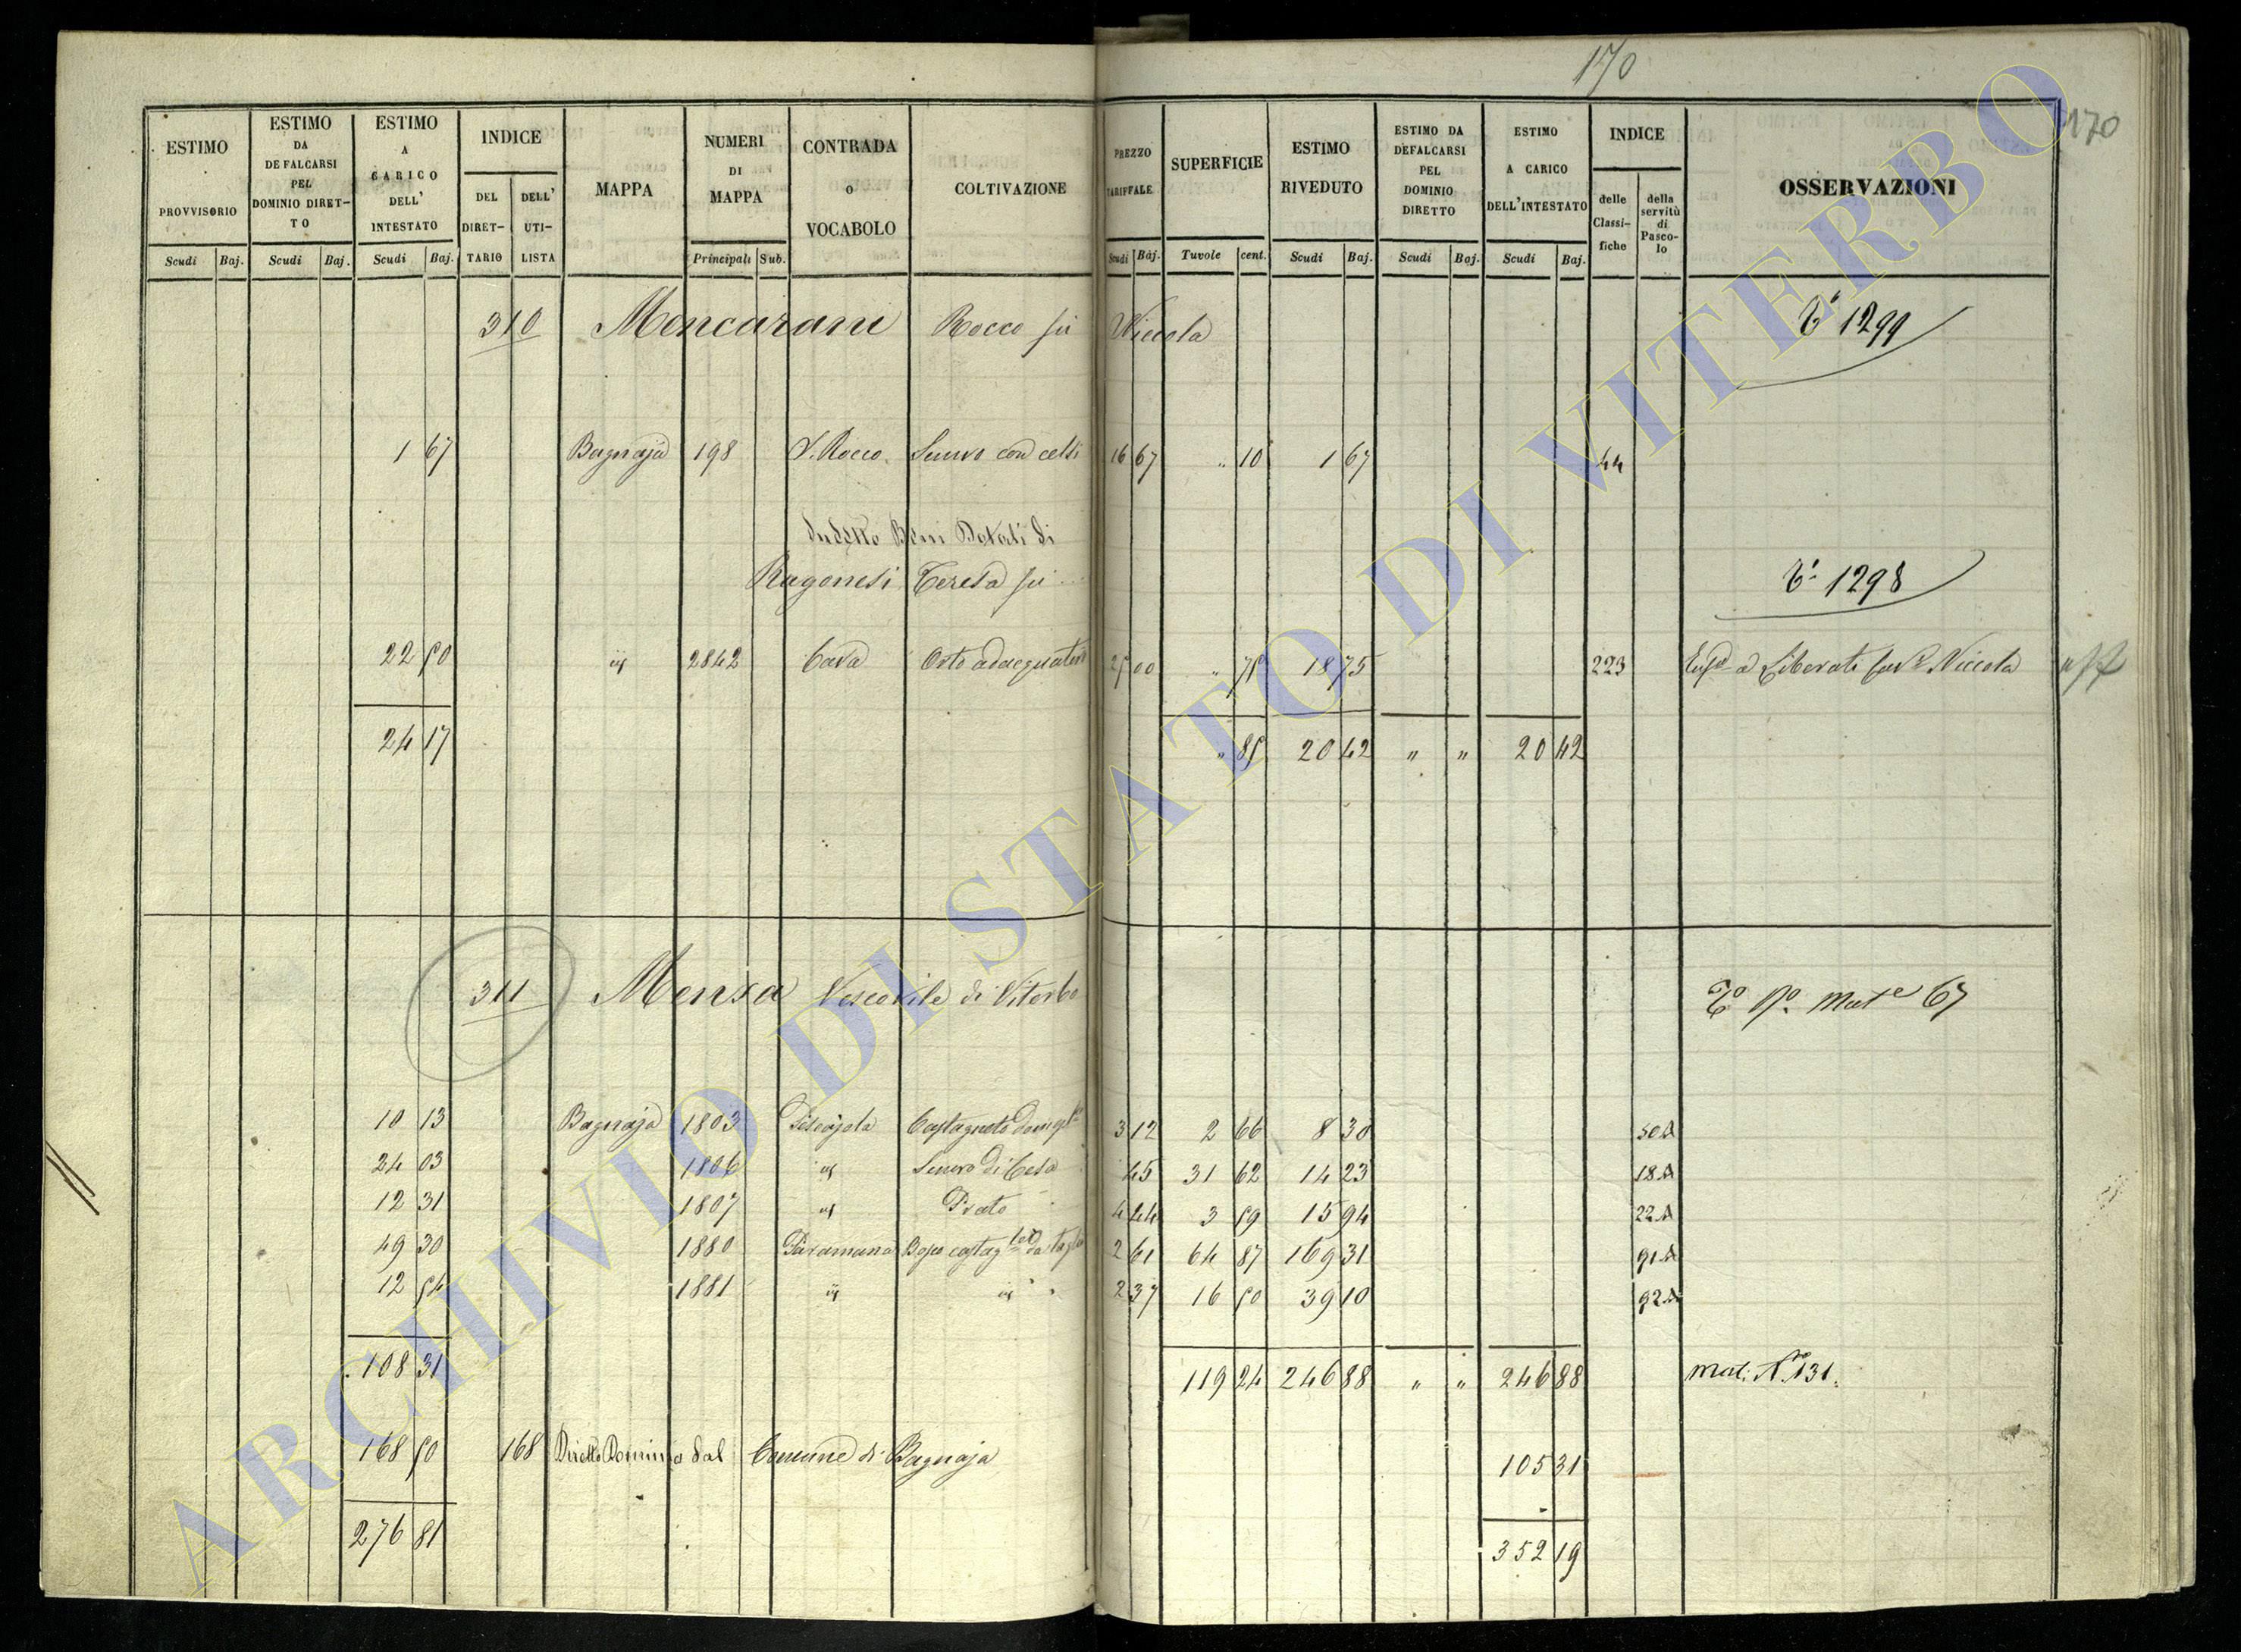 170
170
ESTIMO PROVVISORIO
ESTIMO DA DEFALCARSI PEL DOMINIO DIRET-TO
ESTIMO A CARICO DELL' INTESTATO
INDICE
DEL DIRET-TARIO
DELL' UTI-LISTA
MAPPA
NUMERI DI MAPPA
CONTRADA O VOCABOLO
COLTIVAZIONE
PREZZO TARIFFALE
SUPERFICIE
ESTIMO RIVEDUTO
ESTIMO DA DEFALCARSI PEL DOMINIO DIRETTO
ESTIMO A CARICO DELL'INTESTATO
INDICE
delle Classi-fiche
della servitù di Pasco-lo
OSSERVAZIONI
Scudi Baj. Scudi Baj. Scudi Baj. Principali Sub. Scudi Baj. Tavole cent. Scudi Baj. Scudi Baj. Scudi Baj.
310 Mencarani Rocco fu Niccola 1299
1 67 Bagnaja 198 S. Rocco Semvo con celsi 16 67 " 10 1 67 44
Sudetto Beni Dotali di
Ragonesi Teresa fu 1298
22 50 id 2842 Cava Orto adacquativo 25 00 " 75 18 75 223 a Liberati Niccola
24 17 " 85 20 42 " " 20 42
311 Mensa Vescovile di Viterbo Mate 67
10 13 Bagnaja 1803 Piscajola Castagneto Domest 3 12 2 66 8 30 50A
24 03 1806 id Semvo di Cesa 45 31 62 14 23 18A
12 31 1807 id Prato 4 44 3 59 15 94 22A
49 30 1880 Paramana Bosco castag to da taglio 2 61 64 87 169 31 91A
12 54 1881 id id 2 37 16 50 39 10 92A
108 31 119 24 246 88 " " 246 88 Mat: N. 131
168 50 168 Diretto Dominio dal Comune di Bagnaja 105 31
276 81 352 19
ARCHIVIO DI STATO DI VITERBO